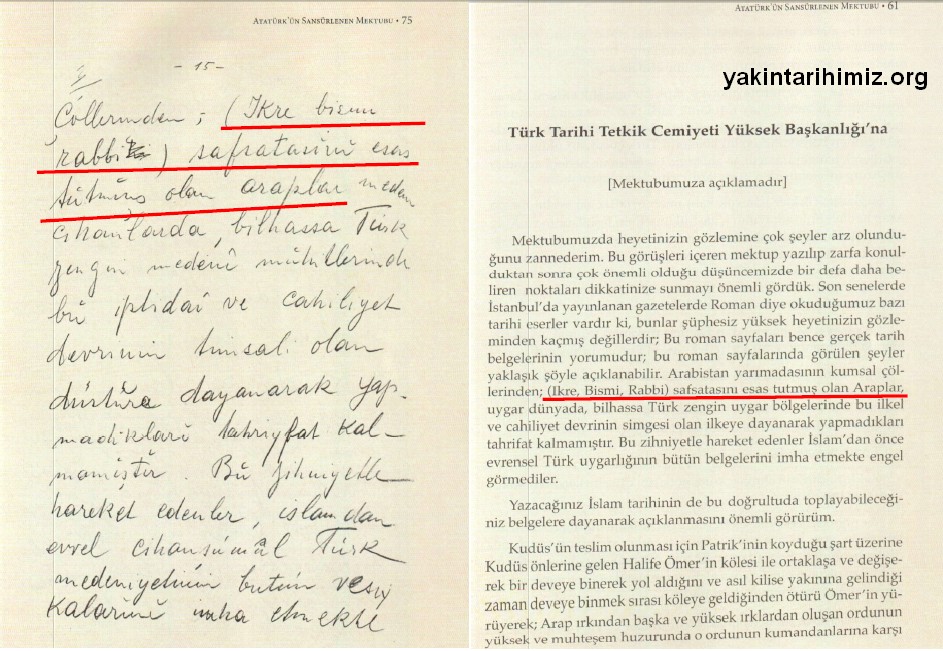 ATATÜRK'ÜN SANSÜRLENEN MEKTUBU • 75
- 15 -
Çöllerinden; (Ikre bismi
rabbi) safsatasını esas
tutmuş olan araplar meden
cihanlarda, bilhassa Türk
zengin medenî mühitlerinde
bu iptidaî ve cahiliyet
devrinin timsali olan
düstûra dayanarak yap-
madıkları tahrifat kal-
mamıştır. Bu zihniyetle
hareket edenler, islamdan
evvel cihanşümûl Türk
medeniyetinin bütün vesi
kalarını imha etmekte
ATATÜRK'ÜN SANSÜRLENEN MEKTUBU • 61
yakintarihimiz.org
Türk Tarihi Tetkik Cemiyeti Yüksek Başkanlığı'na
[Mektubumuza açıklamadır]
Mektubumuzda heyetinizin gözlemine çok şeyler arz olundu-
ğunu zannederim. Bu görüşleri içeren mektup yazılıp zarfa konul-
duktan sonra çok önemli olduğu düşüncemizde bir defa daha be-
liren noktaları dikkatinize sunmayı önemli gördük. Son senelerde
İstanbul'da yayınlanan gazetelerde Roman diye okuduğumuz bazı
tarihi eserler vardır ki, bunlar şüphesiz yüksek heyetinizin gözle-
minden kaçmış değillerdir; Bu roman sayfaları bence gerçek tarih
belgelerinin yorumudur; bu roman sayfalarında görülen şeyler
yaklaşık şöyle açıklanabilir. Arabistan yarımadasının kumsal çöl-
lerinden; (Ikre, Bismi, Rabbi) safsatasını esas tutmuş olan Araplar,
uygar dünyada, bilhassa Türk zengin uygar bölgelerinde bu ilkel
ve cahiliyet devrinin simgesi olan ilkeye dayanarak yapmadıkları
tahrifat kalmamıştır. Bu zihniyetle hareket edenler İslam'dan önce
evrensel Türk uygarlığının bütün belgelerini imha etmekte engel
görmediler.
Yazacağınız İslam tarihinin de bu doğrultuda toplayabileceği-
niz belgelere dayanarak açıklanmasını önemli görürüm.
Kudüs'ün teslim olunması için Patrik'inin koyduğu şart üzerine
Kudüs önlerine gelen Halife Ömer'in kölesi ile ortaklaşa ve değişe-
rek bir deveye binerek yol aldığını ve asıl kilise yakınına gelindiği
zaman deveye binmek sırası köleye geldiğinden ötürü Ömer'in yü-
rüyerek; Arap ırkından başka ve yüksek ırklardan oluşan ordunun
yüksek ve muhteşem huzurunda o ordunun kumandanlarına karşı